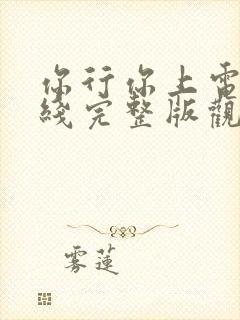 你行你上電
綫完整版觀
雾蓮